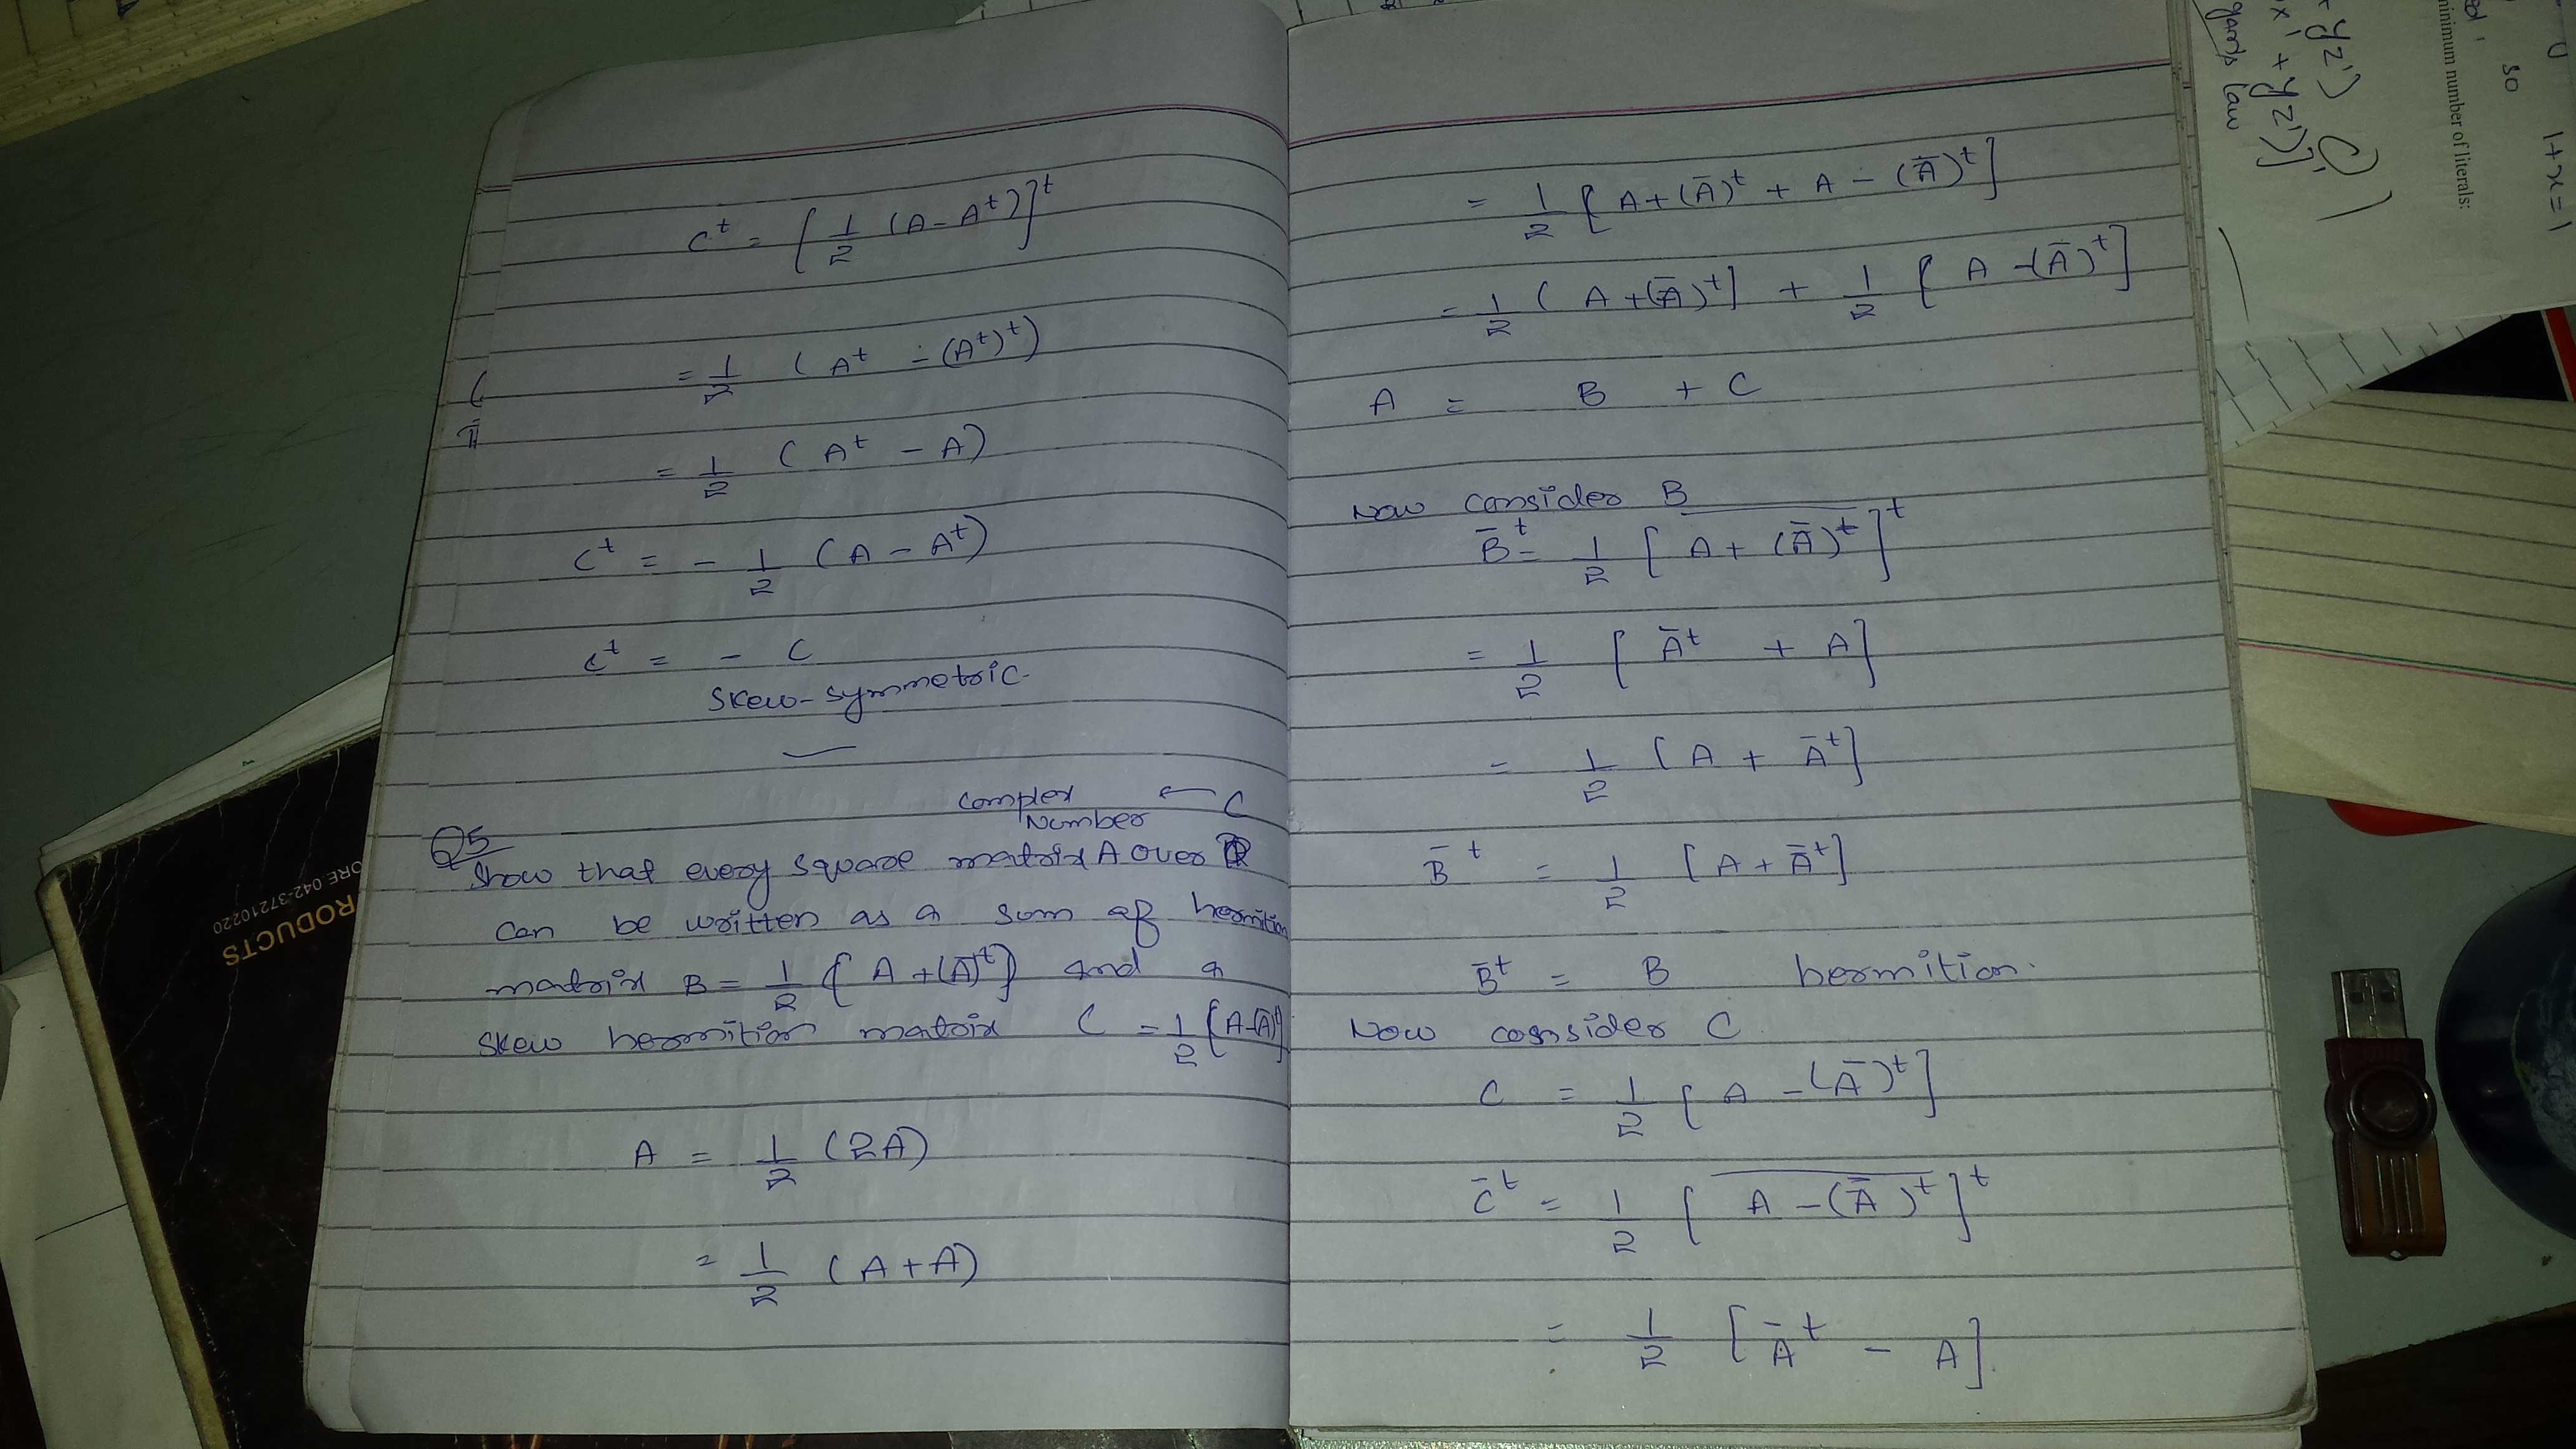 C^t = [1/2 (A - A^t)]^t
= 1/2 (A^t - (A^t)^t)
= 1/2 (A^t - A)
C^t = - 1/2 (A - A^t)
C^t = - C
Skew-symmetric.
Complex Number ← C
Q5
Show that every square matrix A over
can be written as a sum of hermition
matrix B = 1/2 [A + (Ā)^t] and a
skew hermition matrix C = 1/2 [A - (Ā)^t]
A = 1/2 (2A)
= 1/2 (A + A)
= 1/2 [A + (Ā)^t + A - (Ā)^t]
= 1/2 (A + (Ā)^t] + 1/2 [A - (Ā)^t]
A = B + C
Now consider B
B̄^t = 1/2 [A + (Ā)^t]^t
= 1/2 [Ā^t + A]
= 1/2 [A + Ā^t]
B̄^t = 1/2 [A + Ā^t]
B̄^t = B hermition.
Now consider C
C = 1/2 [A - (Ā)^t]
C̄^t = 1/2 [A - (Ā)^t]^t
= 1/2 [Ā^t - A]
ORE 042-37210220
RODUCTS
so
1+x=1
minimum number of literals:
+yz')
x'+yz')]
law